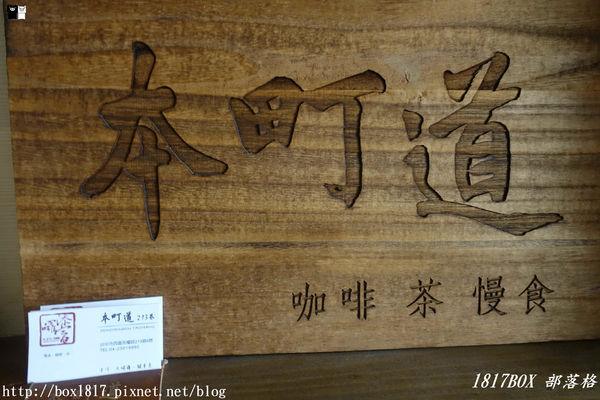 本町道
咖啡 茶 慢食
本町道 213巷
1817BOX 部落格
http://box1817.pixnet.net/blog